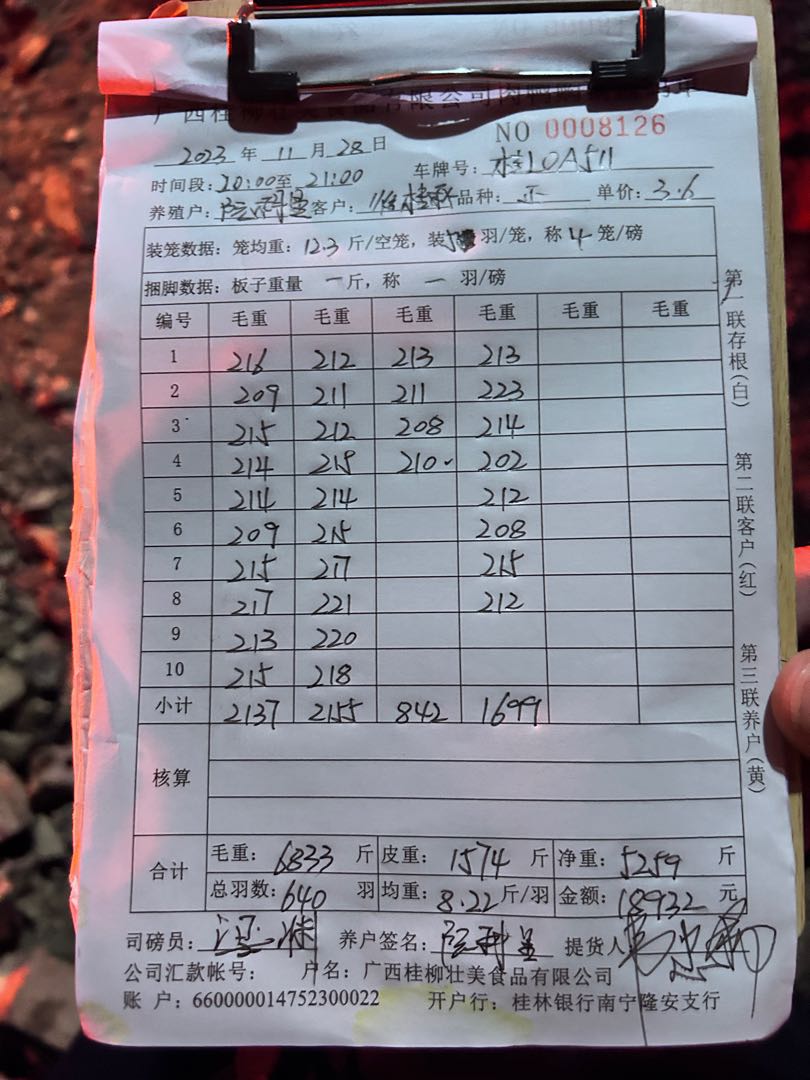 NO 0008126
2023 年 11 月 28 日
车牌号: 桂L0A511
时间段: 20:00至 21:00
养殖户: 客户: 品种: 单价: 3.6
装笼数据: 笼均重: 12.3 斤/空笼, 装 羽/笼, 称 4 笼/磅
捆脚数据: 板子重量 一 斤, 称 一 羽/磅
编号 毛重 毛重 毛重 毛重 毛重 毛重
1 216 212 213 213
2 209 211 211 223
3 215 212 208 214
4 214 215 210 202
5 214 214 212
6 209 215 208
7 215 217 215
8 217 221 212
9 213 220
10 215 218
小计 2137 2155 842 1699
核算
合计
毛重: 6833 斤 皮重: 1574 斤 净重: 5259 斤
总羽数: 640 羽 均重: 8.22 斤/羽 金额: 18932 元
司磅员: 养户签名: 提货人
公司汇款帐号: 户名: 广西桂柳壮美食品有限公司
账 户: 660000014752300022 开户行: 桂林银行南宁隆安支行
第一联存根(白)
第二联客户(红)
第三联养户(黄)